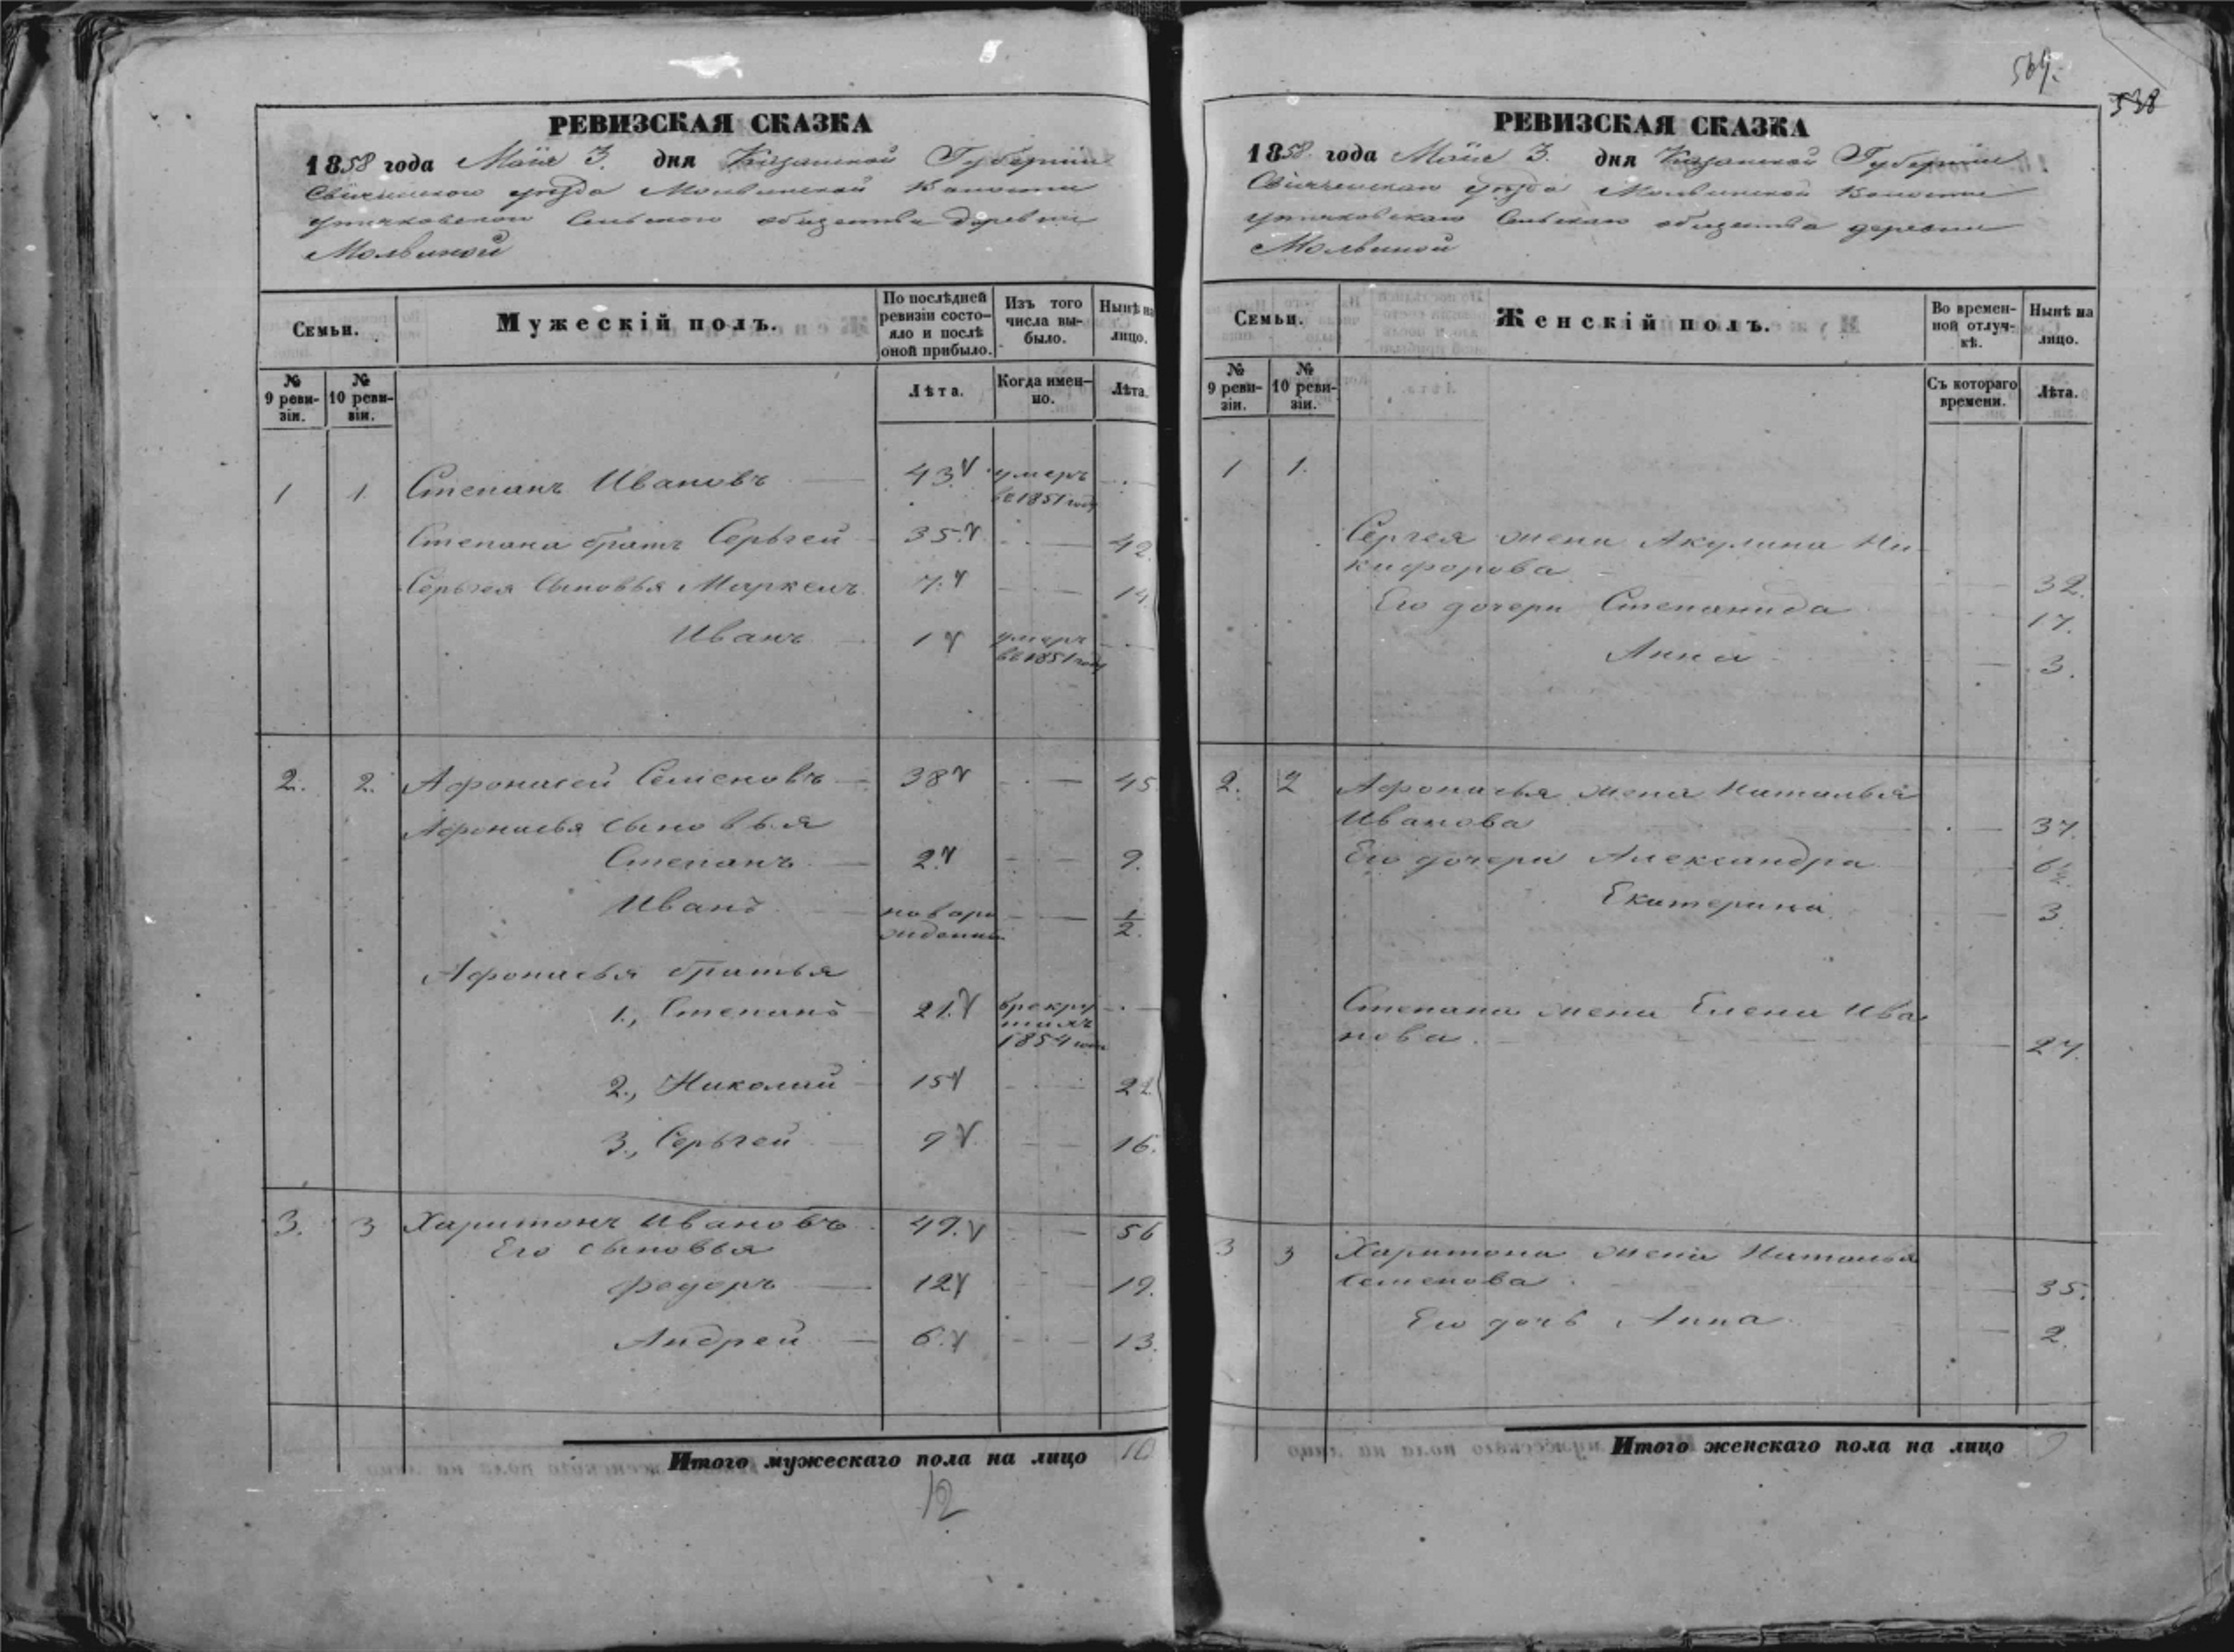 569.
538
РЕВИЗСКАЯ СКАЗКА
1858 года Маія 3. дня Казанской Губерніи
Свіяжскаго уѣзда Молвинской Волости
Сельскаго общества деревни
Молвиной
Семьи.
Мужескій полъ.
По послѣдней ревизіи состояло и послѣ оной прибыло.
Изъ того числа выбыло.
Нынѣ на лицо.
№ 9 ревизіи.
№ 10 ревизіи.
Лѣта.
Когда именно.
Лѣта.
1 1. Степанъ Ивановъ 43. умеръ
въ 1851 году
Степана братъ Серьгей 35. 42.
Серьгея сыновья Маркелъ 7. 14.
Иванъ 1 умеръ
въ 1851 году
2. 2. Афонасей Семеновъ 38 45
Афонасья сыновья
Степанъ 2. 9.
Иванъ новоро 1/2.
жденный
Афонасья братья
1., Степанъ 21. в рекру
тахъ
1854 года
2., Николай 15 22
3., Серьгей 9 16.
3. 3 Харитонъ Ивановъ 49. 56
Его сыновья
Федоръ 12 19.
Андрей 6. 13.
Итого мужескаго пола на лицо 10
12
РЕВИЗСКАЯ СКАЗКА
1858. года Маія 3. дня Казанской Губерніи
Свіяжскаго уѣзда Молвинской Волости
Сельскаго общества деревни
Молвиной
Семьи.
Женскій полъ.
Во временной отлучкѣ.
Нынѣ на лицо.
№ 9 ревизіи.
№ 10 ревизіи.
Съ котораго времени.
Лѣта.
1 1.
Сергея жена Акулина Ни
кифорова 32.
Его дочери Степанида 17.
Анна 3.
2. 2 Афонасья жена Наталья
Иванова 37.
Его дочери Александра 6 1/2.
Екатерина 3
Степана жена Елена Ива
нова. 27.
3 3 Харитона жена Наталья
Семенова 35.
Его дочь Анна 2.
Итого женскаго пола на лицо